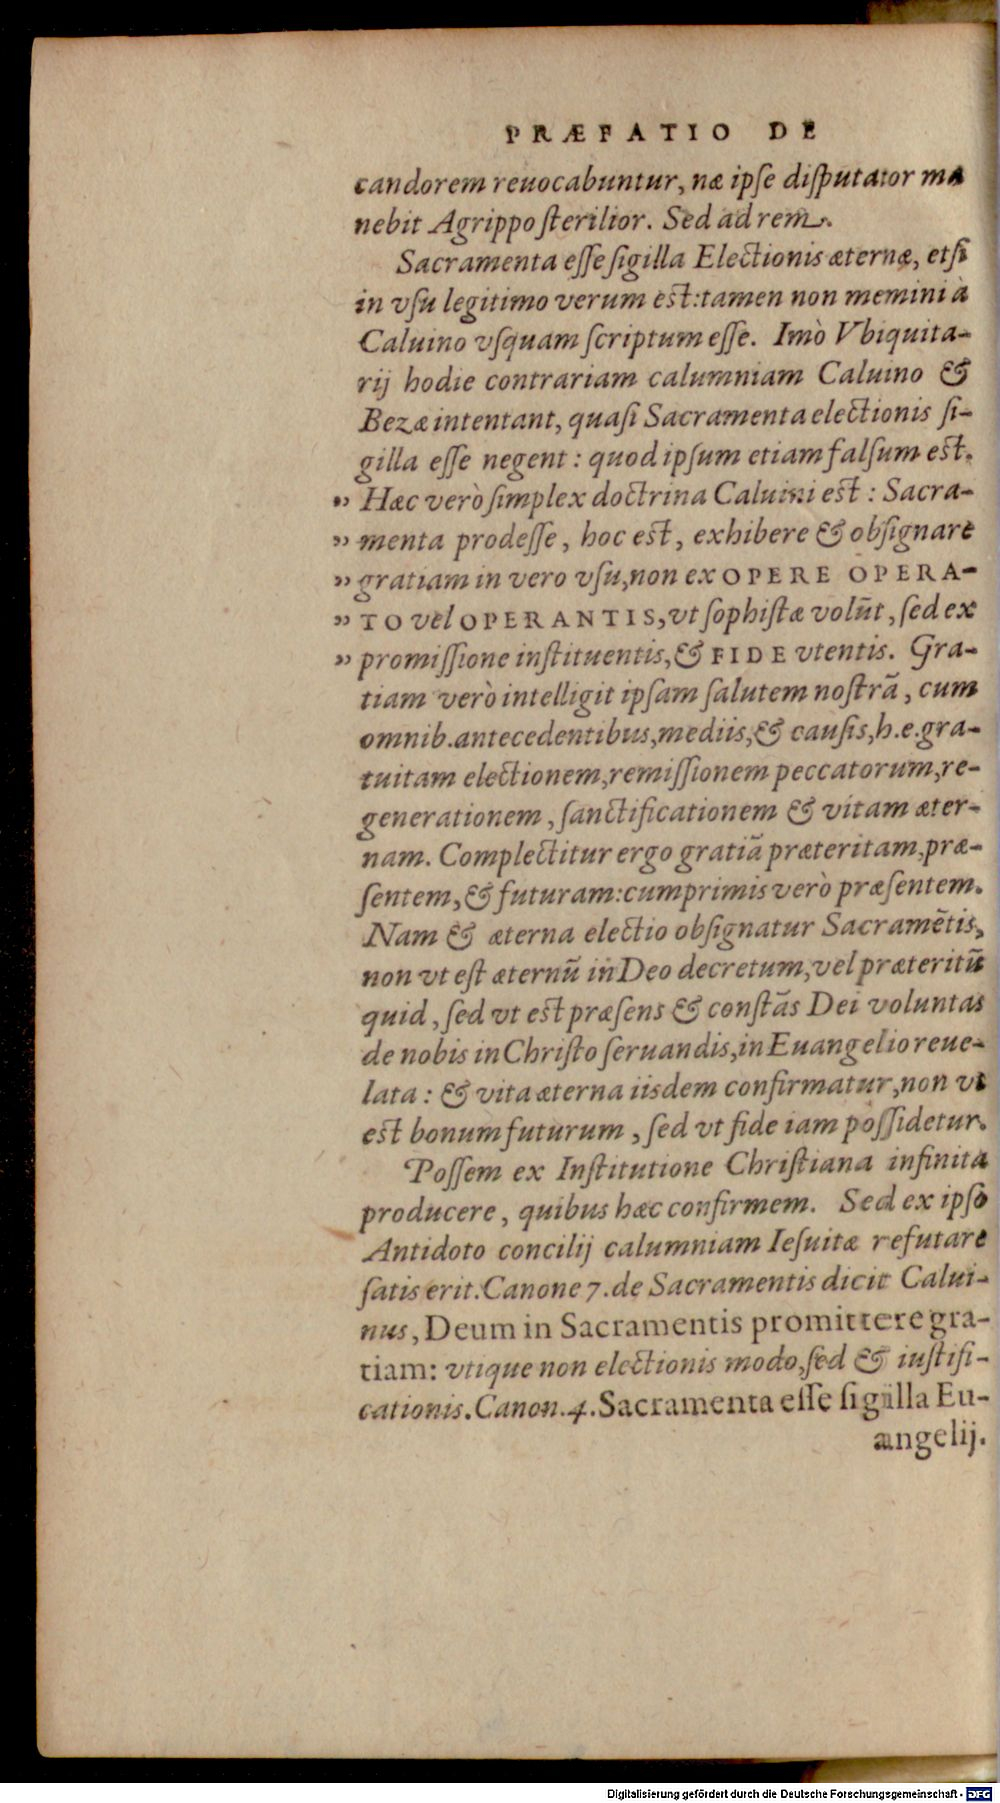 PRÆFATIO DE
candorem reuocabuntur, næ ipſe diſputator ma
nebit Agrippo ſterilior. Sed ad rem.
Sacramenta eſſe ſigilla Electionis æternæ, etſi
in vſu legitimo verum est: tamen non memini à
Caluino vſquam ſcriptum eſſe. Imò Vbiquita-
rij hodie contrariam calumniam Caluino &
Bezæ intentant, quaſi Sacramenta electionis ſi-
gilla eſſe negent : quod ipſum etiam falſum est.
” Hæc verò ſimplex doctrina Caluini est : Sacra-
” menta prodeſſe, hoc est, exhibere & obſignare
” gratiam in vero vſu, non ex OPERE OPERA-
” TO vel OPERANTIS, vt ſophiſtæ volũt, ſed ex
” promiſſione inſtituentis, & FIDE vtentis. Gra-
tiam verò intelligit ipſam ſalutem noſtrã, cum
omnib. antecedentibus, mediis, & cauſis, h.e. gra-
tuitam electionem, remiſſionem peccatorum, re-
generationem, ſanctificationem & vitam æter-
nam. Complectitur ergo gratiã præteritam, præ-
ſentem, & futuram: cumprimis verò præſentem.
Nam & æterna electio obſignatur Sacramẽtis,
non vt eſt æternũ in Deo decretum, vel præteritũ
quid, ſed vt est præſens & conſtãs Dei voluntas
de nobis in Chriſto ſeruandis, in Euangelio reue-
lata : & vita æterna iisdem confirmatur, non vt
est bonum futurum, ſed vt fide iam poſſidetur.
Poſſem ex Inſtitutione Chriſtiana infinita
producere, quibus hæc confirmem. Sed ex ipſo
Antidoto concilij calumniam Ieſuitæ refutare
ſatis erit. Canone 7. de Sacramentis dicit Calui-
nus, Deum in Sacramentis promittere gra-
tiam: vtique non electionis modo, ſed & iuſtifi-
cationis. Canon. 4. Sacramenta eſſe ſigilla Eu-
angelij.
Digitalisierung gefördert durch die Deutsche Forschungsgemeinschaft - DFG